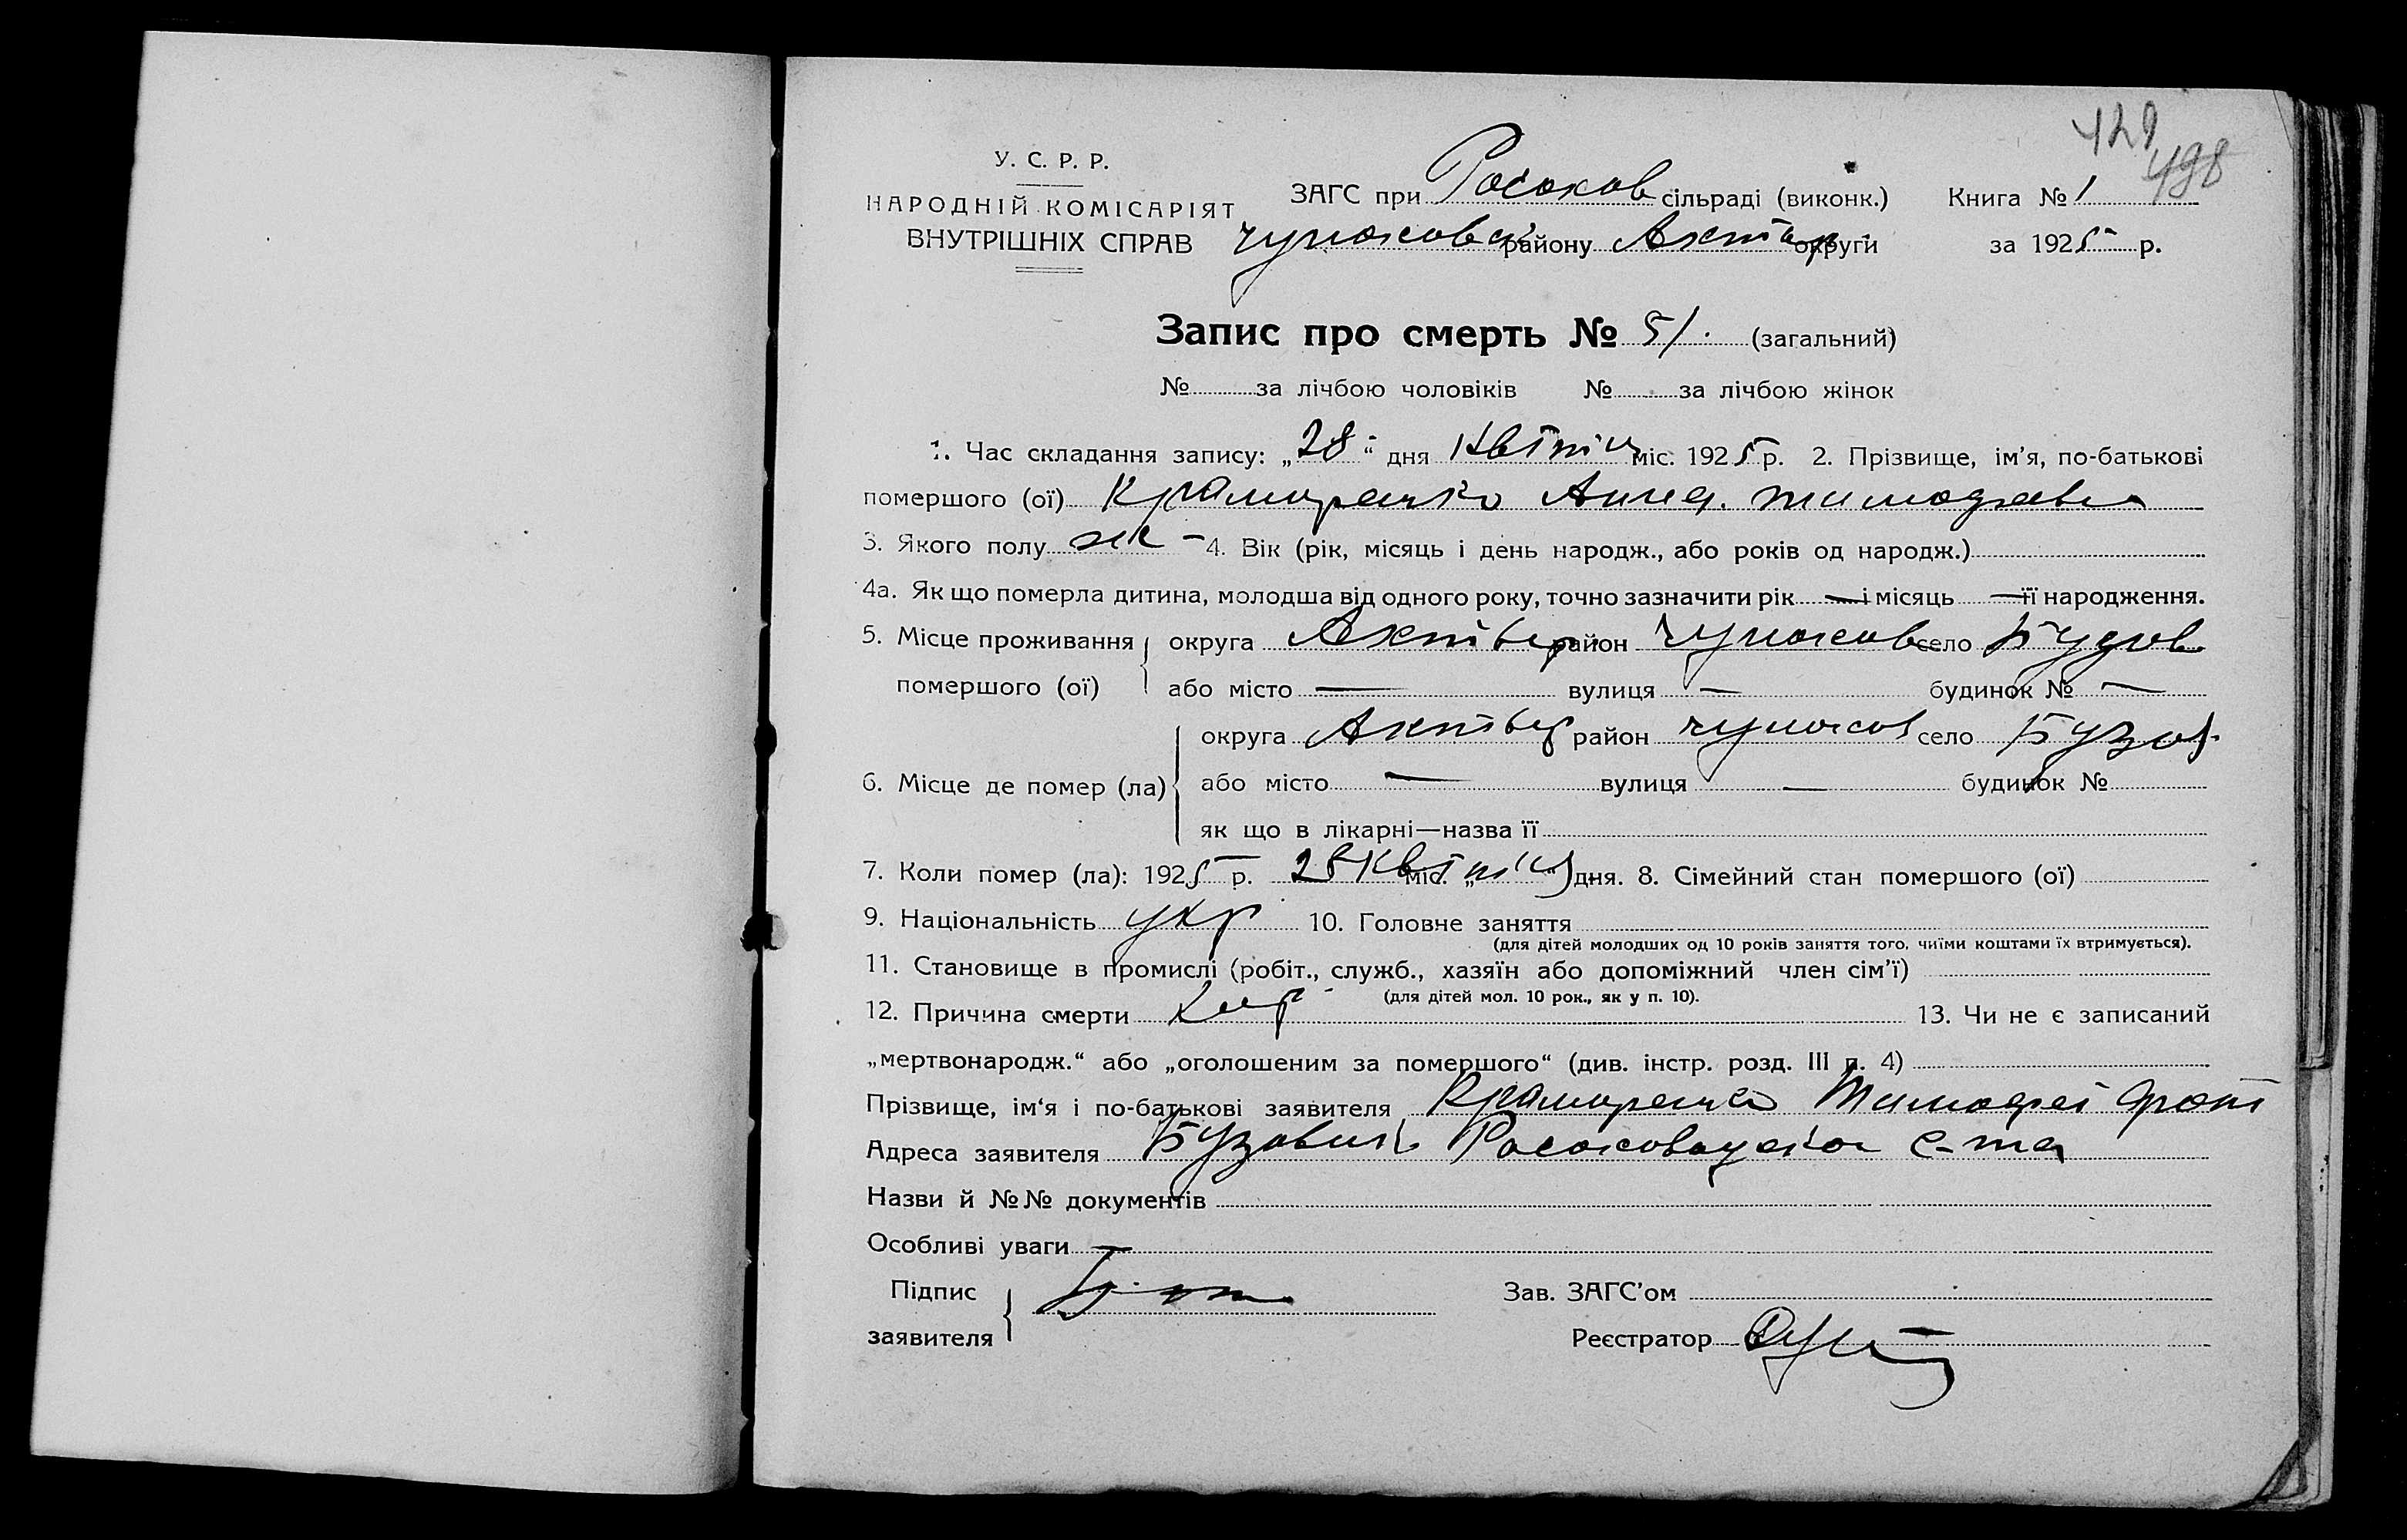 429
498
У. С. Р. Р.
НАРОДНІЙ КОМІСАРІЯТ
ВНУТРІШНІХ СПРАВ
ЗАГС при Росохов сільраді (виконк.) Книга № 1
району Ахтир округи за 1925 р.
Запис про смерть № 51. (загальний)
№ за лічбою чоловіків № за лічбою жінок
1. Час складання запису: „28“ дня Квітня міс. 1925 р. 2. Прізвище, ім’я, по-батькові
помершого (ої) Крамаренко Анна
3. Якого полу жін - 4. Вік (рік, місяць і день народж., або років од народж.)
4а. Як що померла дитина, молодша від одного року, точно зазначити рік — і місяць — її народження.
5. Місце проживання помершого (ої) округа район село
або місто — вулиця — будинок № —
6. Місце де помер (ла) округа район село
або місто — вулиця — будинок №
як що в лікарні—назва її
7. Коли помер (ла): 1925 р. 28 Квітня міс. „ “ дня. 8. Сімейний стан помершого (ої)
9. Національність укр 10. Головне заняття
(для дітей молодших од 10 років заняття того, чиїми коштами їх втримується).
11. Становище в промислі (робіт., служб., хазяїн або допоміжний член сім’ї)
(для дітей мол. 10 рок., як у п. 10).
12. Причина смерти 13. Чи не є записаний
„мертвонародж.“ або „оголошеним за помершого“ (див. інстр. розд. III п. 4)
Прізвище, ім‘я і по-батькові заявителя Крамаренко Тимофеі
Адреса заявителя
Назви й №№ документів
Особливі уваги —
Підпис заявителя
Зав. ЗАГС’ом
Реєстратор